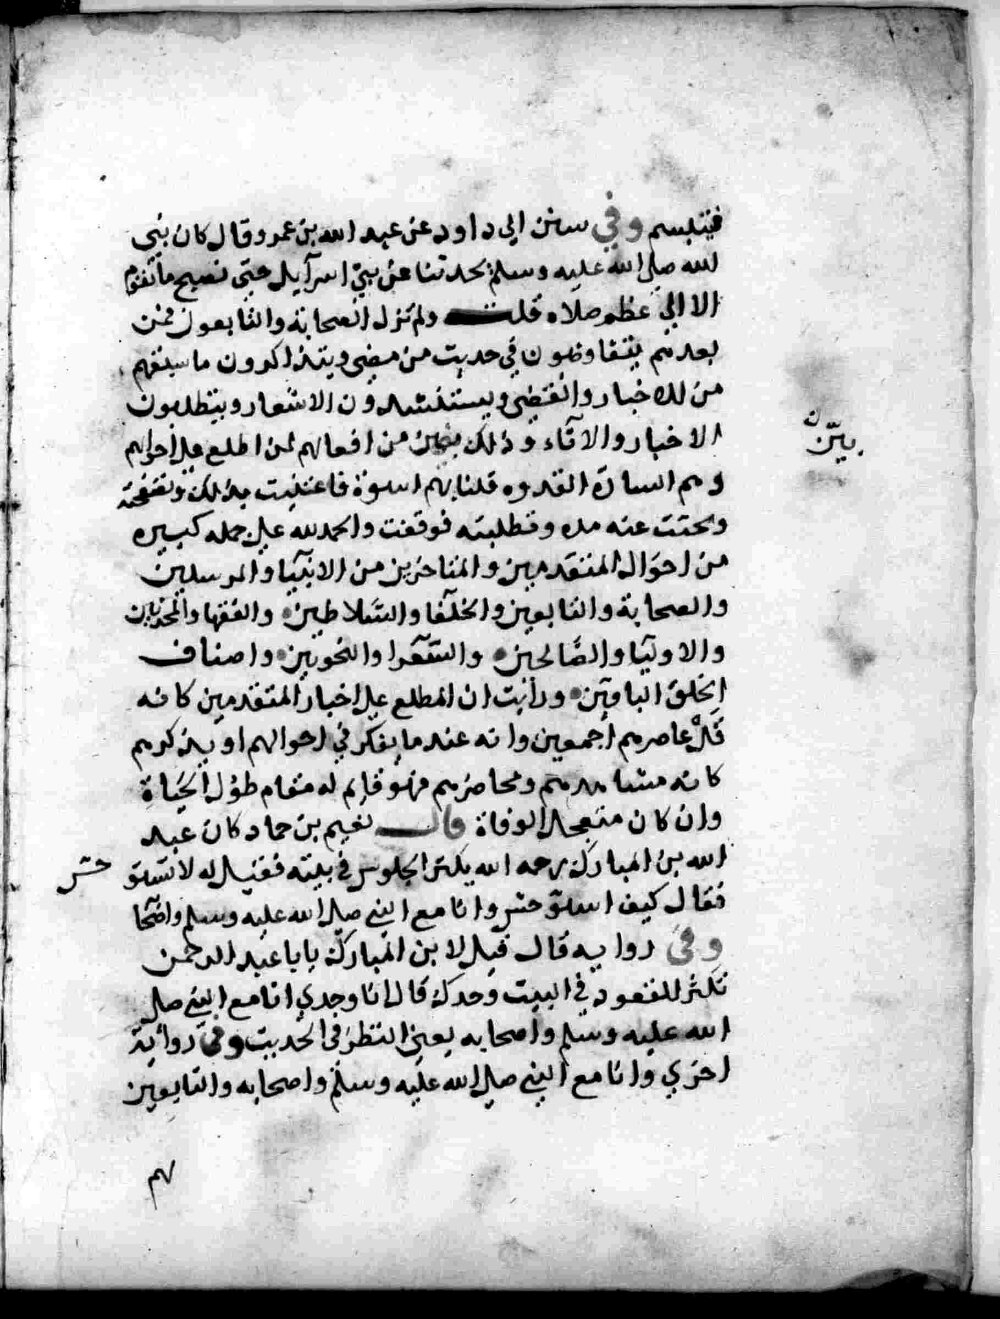 فيتبسم وفي سنن ابي داود عن عبد الله بن عمرو قال كان نبي
لله صلى الله عليه وسلم يحدثنا عن بني اسرآيل حتى نصبح ما نقوم
الا الي عظم صلاه قلت ولم تزل الصحابة والتابعون فمن
بعدهم يتفاوضون في حديث من مضى ويتذاكرون ما سبقهم
من الاخبار وانقضي ويستنشدون الاشعار ويتطلبون
الاخبار والاثاء وذلك بين من افعالهم لمن اطلع على احوالهم
وهم السادة القدوه فلنا بهم اسوة فاعتنيت بذلك وتفحصته
وبحثت عنه مده وتطلبته فوقفت والحمد لله على جمله كبيره
من احوال المتقدمين والمتاخرين من الانبيا والمرسلين
والصحابة والتابعين والخلفا والسلاطين والفقها والمحدثين
والاوليا والصالحين والشعرا والنحويين واصناف
الخلق الباقين ورايت ان المطلع على اخبار المتقدمين كانه
قد عاصرهم اجمعين وانه عند ما يفكر في احوالهم او يذكرهم
كانه مشاهدهم ومحاضرهم فهو قايم له مقام طول الحياة
وان كان متعجل الوفاة قال نعيم بن حماد كان عبد
الله بن المبارك رحمه الله يكثر الجلوس في بيته فقيل له لا تستو حش
فقال كيف استوحش وانا مع النبي صلى الله عليه وسلم واصحا
وفي روايه قال قيل لابن المبارك يابا عبد الرحمن
تكثر القعود في البيت وحدك قال انا وحدي انا مع النبي صلى
الله عليه وسلم واصحابه يعني النظر في الحديث وفي رواية
اخري وانا مع النبي صلى الله عليه وسلم واصحابه والتابعين
لهم
بيّن